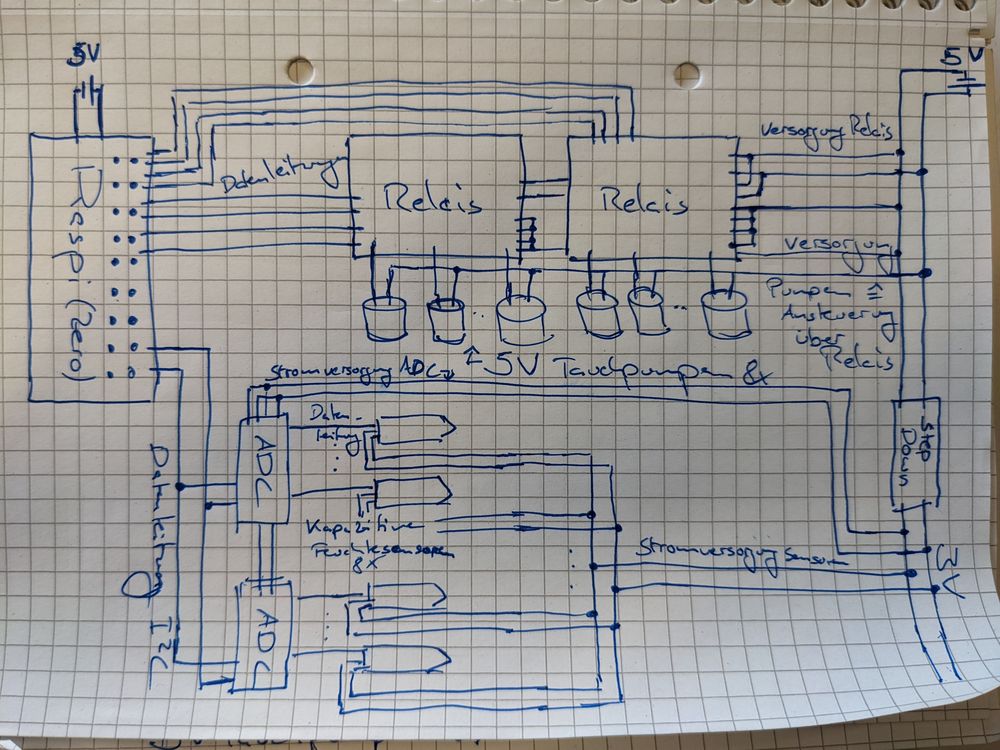 5V
5V
Respi (Zero)
Datenleitung
Relais
Relais
Versorgung Relais
Versorgung
Pumpen
Ansteuerung
über
Relais
5V Tauchpumpen 8x
Stromversorgung ADC
ADC
Daten-
leitung
Kapazitive
Feuchtesensoren
8x
Step
Down
Stromversorgung Sensoren
3V
Datenleitung I2C
ADC